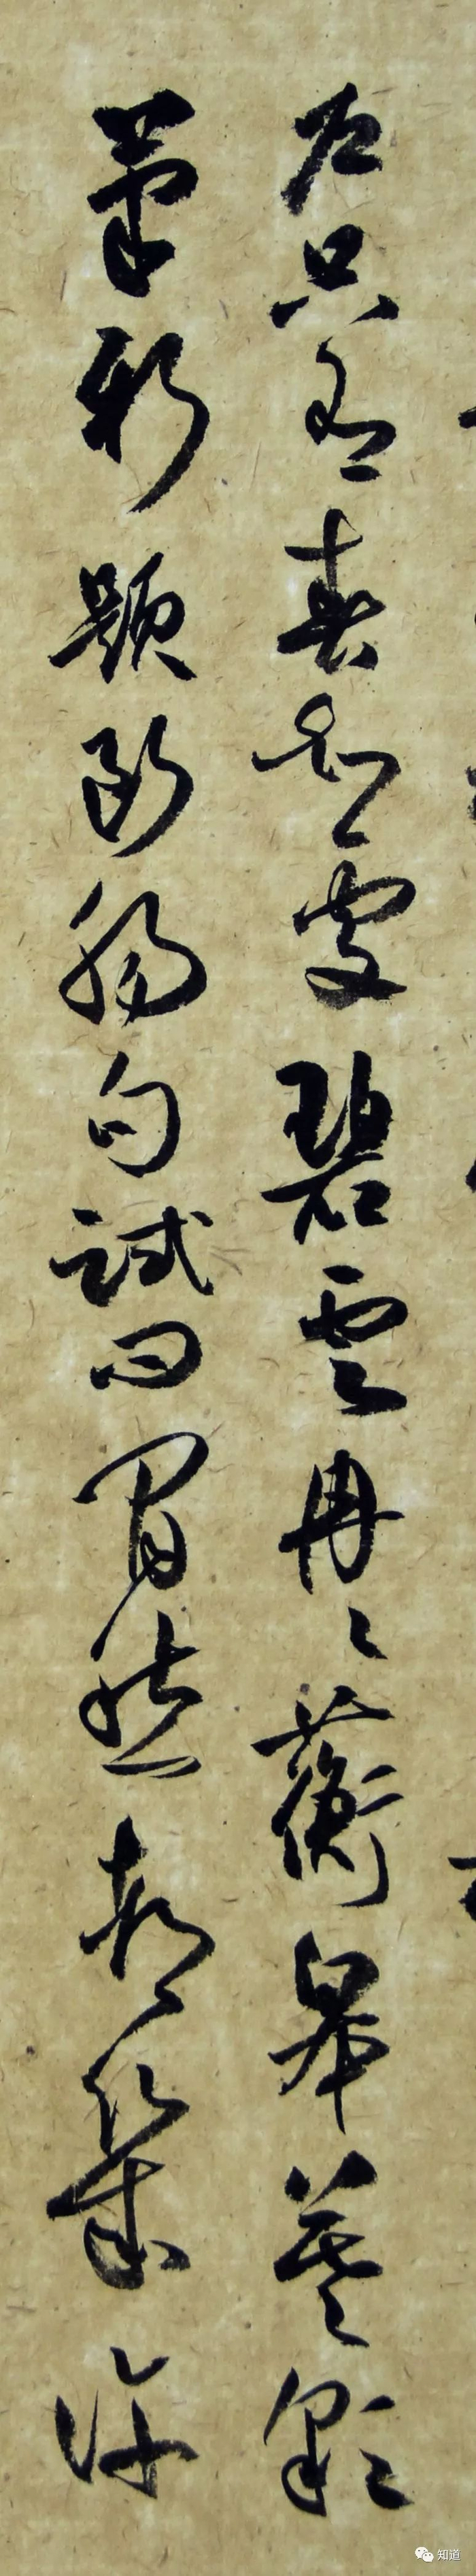 户只有春知處碧雲冉〻蘅皋暮彩
筆新題斷腸句試問閒愁都幾許
知道